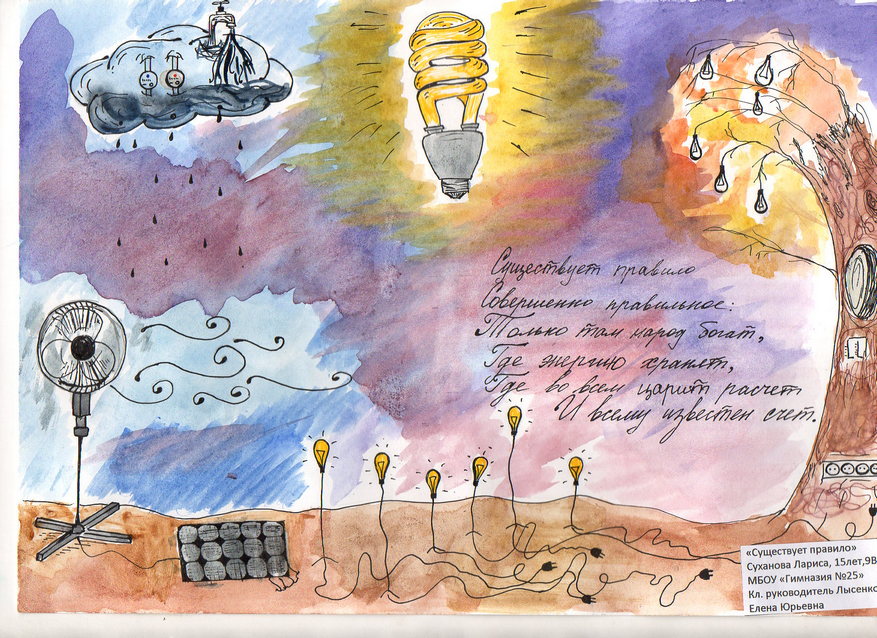 Существует правило
Совершенно правильное:
Только там народ богат,
Где энергию хранят,
Где во всем царит расчет
И всему известен счет.
«Существует правило»
Суханова Лариса, 15лет,9В
МБОУ «Гимназия №25»
Кл. руководитель Лысенко
Елена Юрьевна